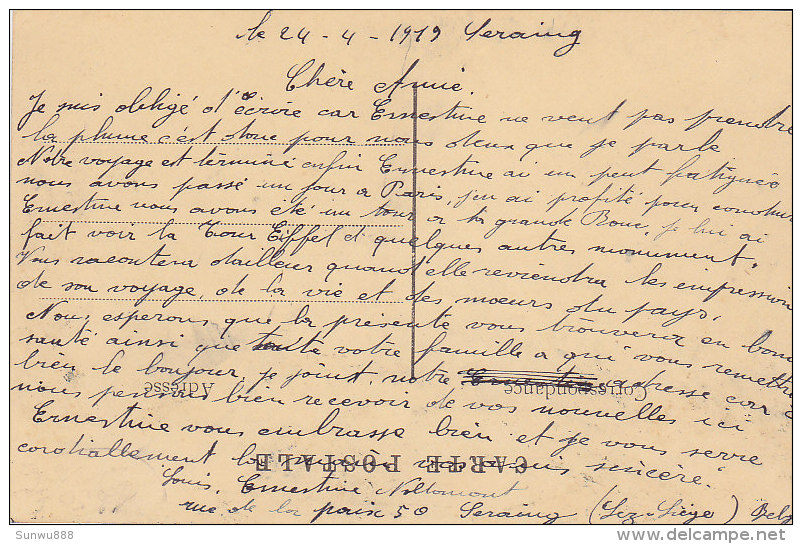 le 24 - 4 - 1919 Seraing
Chère Amie.
Je suis obligé d'écrire car Ernestine ne veut pas prendre
la plume c'est donc pour nous deux que je parle
Notre voyage et terminé enfin Ernestine ai un peut fatiguée
nous avons passé un jour a Paris, j'en ai profité pour conduire
Ernestine nous avons eté un tour a la grande Roue, je lui ai
fait voir la Tour Eiffel et quelques autres monument.
Vous racontera d'ailleur quand elle reviendra les impression
de son voyage, de la vie et des mœurs du pays.
Nous esperons que la présente vous trouvera en bonne
santé ainsi que toute votre famille a qui vous remettre
bien le bonjour, je joint notre adresse car
nous pensons bien recevoir de vos nouvelles ici
Ernestine vous embrasse bien et je vous serre
cordiallement la main sincère.
Louis, Ernestine
rue de la paix 50 Seraing (Lez-Liège) Belg
Correspondance
Adresse
CARTE POSTALE
Sunwu888
delcampe.net